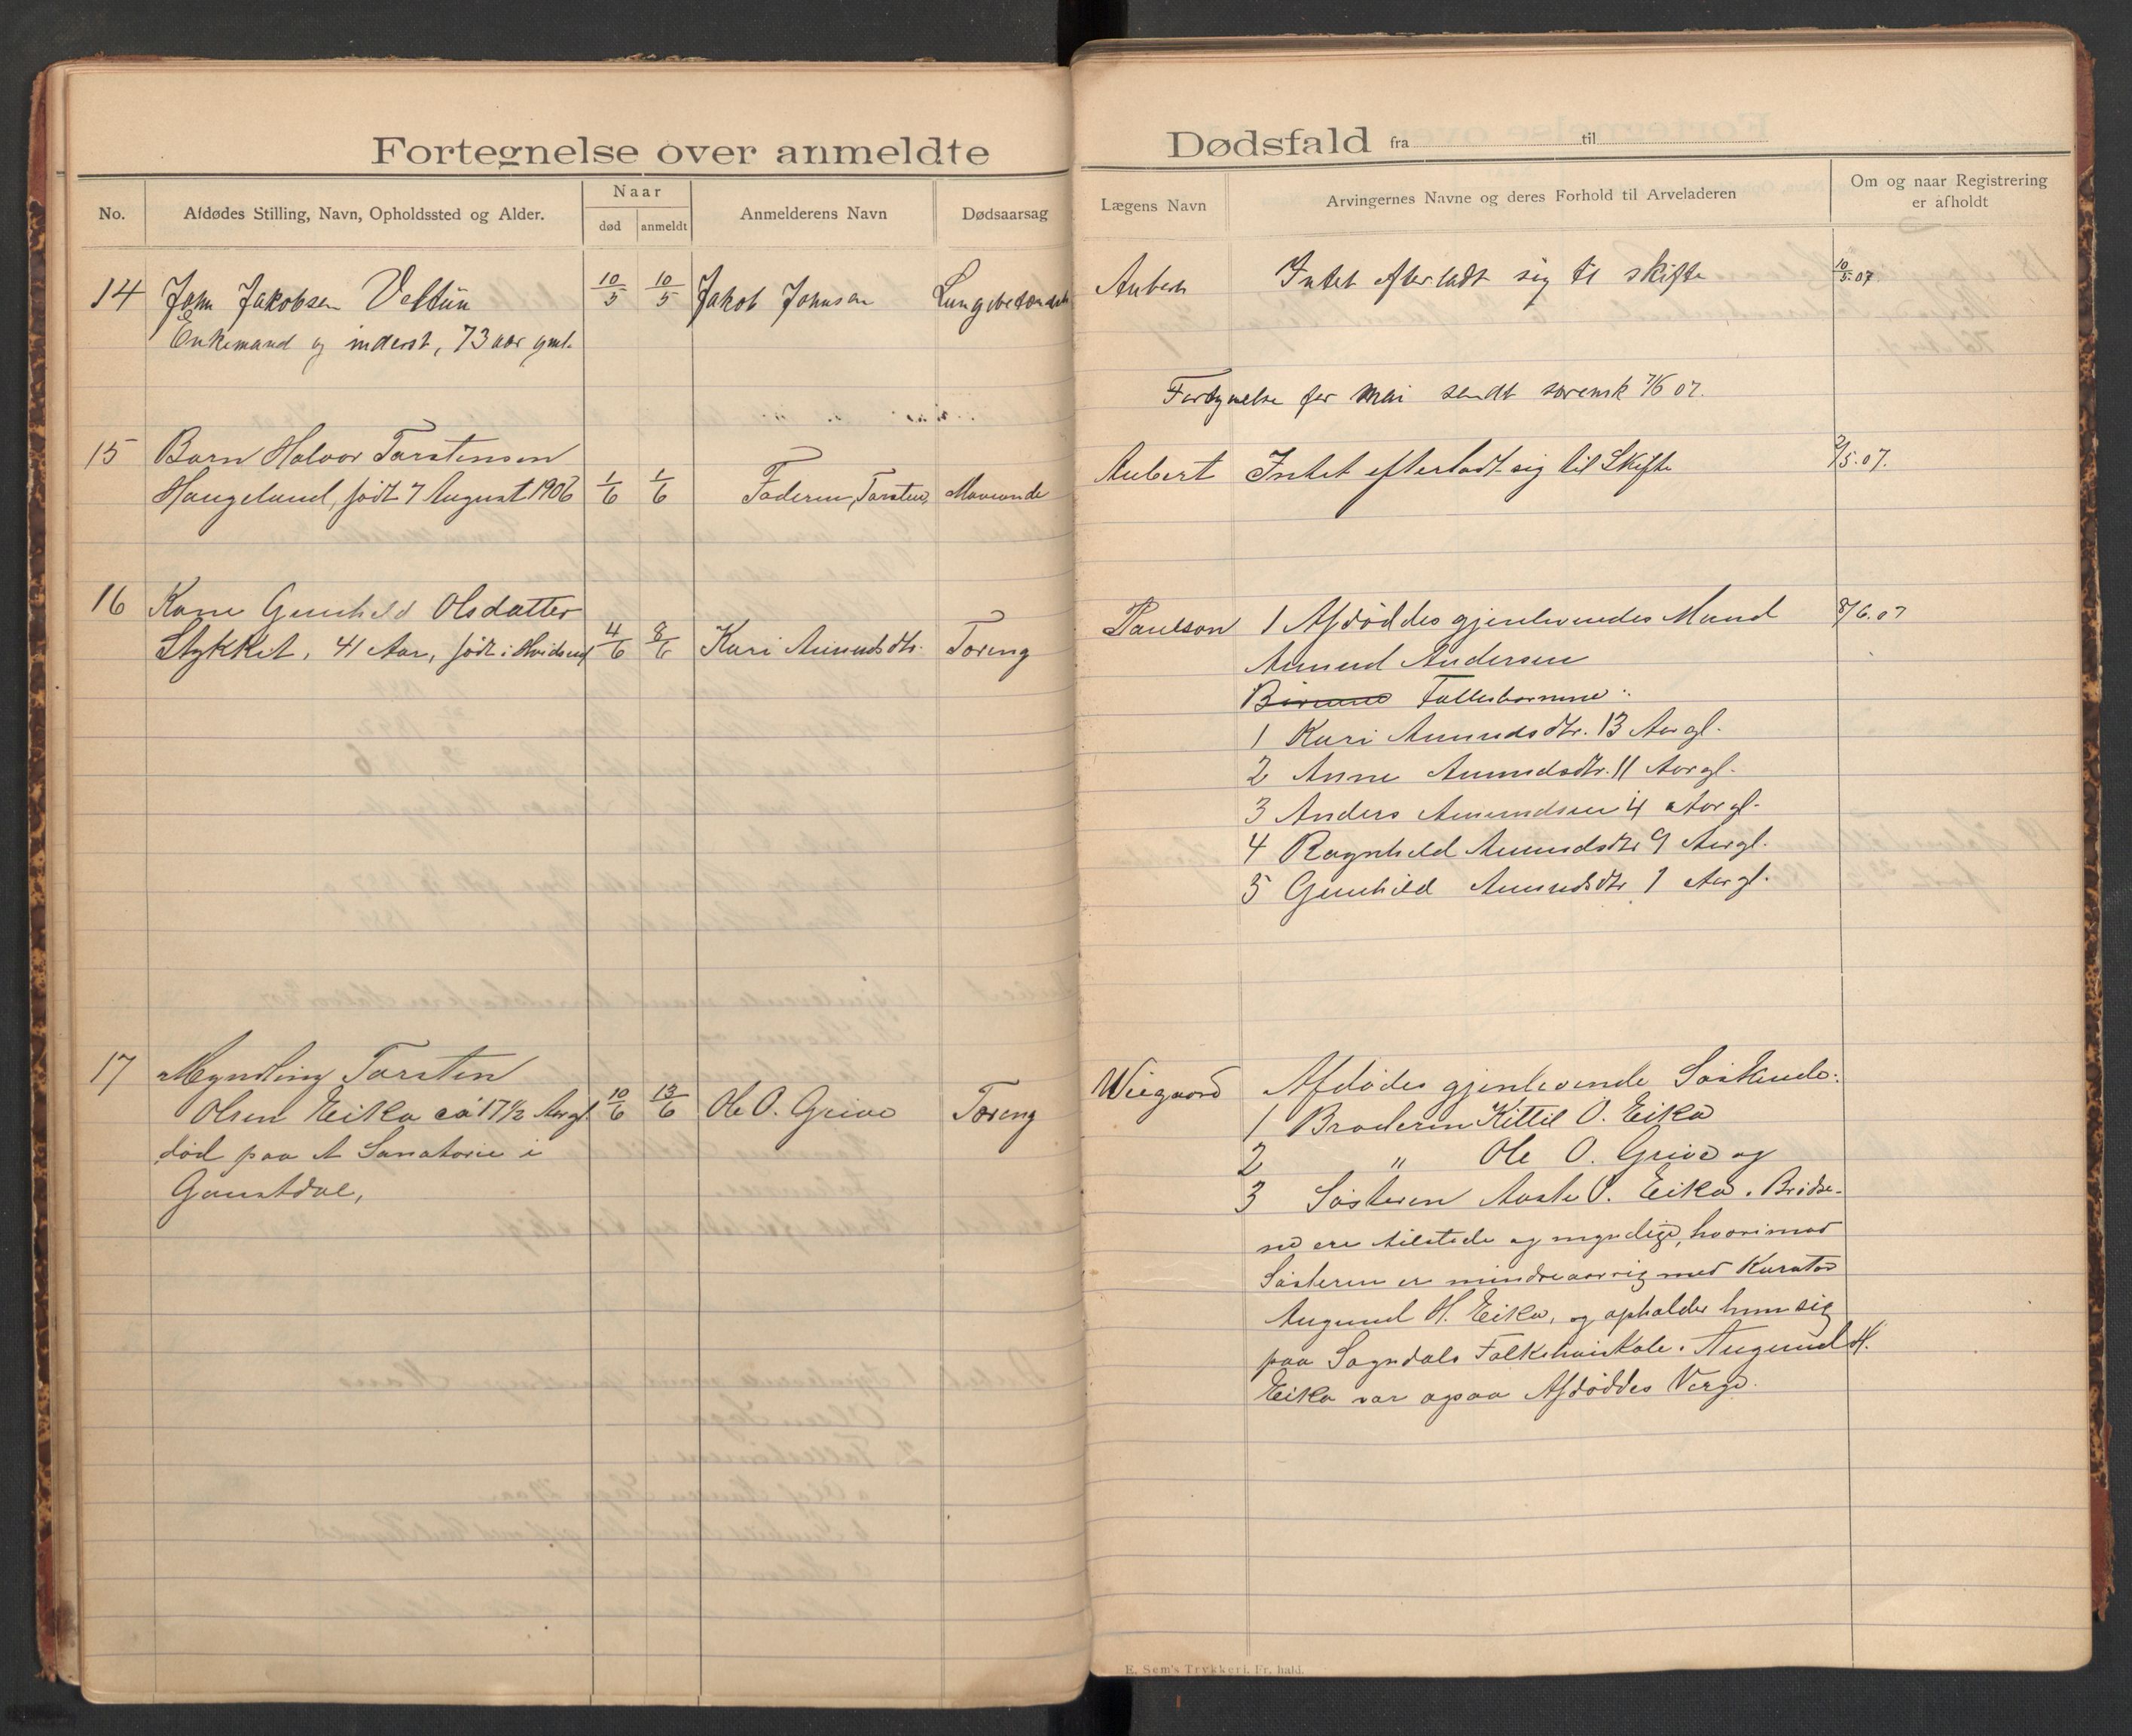 Fortegnelse over anmeldte
No.
Afdødes Stilling, Navn, Opholdssted og Alder.
Naar
død
anmeldt
Anmelderens Navn
Dødsaarsag
14 John Jakobsen Veltün 10/5 10/5 Jakob Johnsen Lungebetændels
Enkemand og inderst, 73 aar gml.
15 Barn Halvor Tarstensen
Haugelund, født 7 August 1906 1/6 1/6 Faderen, Tarsten Mavonde
16 Kone Gunhild Olsdatter
Stykket, 41 Aar, født i Hvidseid 4/6 8/6 Kari Amundsdtr. Tæring
17 Myndling Tarsten
Olsen Eika ca 17 1/2 Aar gl. 10/6 13/6 Ole O. Grivo Tæring
død paa et Sanatorie i
Gaustdal,
Dødsfald fra til
Lægens Navn
Arvingernes Navne og deres Forhold til Arveladeren
Om og naar Registrering
er afholdt
Aubert Intet efterladt sig til skifte 10/5.07.
Fortegnelse for mai sendt sorensk 7/6 07.
Aubert Intet efterladt sig til Skifte 2/5.07.
Paulson 1 Afdøddes gjenlevendes Mand 8/6.07
Amund Andersen
Børnene Fællesbørnene:
1 Kari Amundsdtr. 13 Aar gl.
2 Anne Amundsdtr. 11 Aar gl.
3 Anders Amundsen 4 Aar gl.
4 Ragnhild Amundsdtr 9 Aar gl.
5 Gunhild Amundsdtr 1 Aar gl.
Wiegaard Afdødes gjenlevende Søskende:
1 Broderen Kittil O. Eika
2 " Ole O. Grivo og
3 Søsteren Aaste O. Eika. Brødre-
ne ere tilstede og myndige, hvorimod
Søsteren er mindreaarrig med Kurator
Augund H. Eika, og opholder hun sig
paa Sogndals Folkehøiskole. Augund H.
Eika var ogsaa Afdøddes Verge.
E. Sem's Trykkeri. Fr. hald.